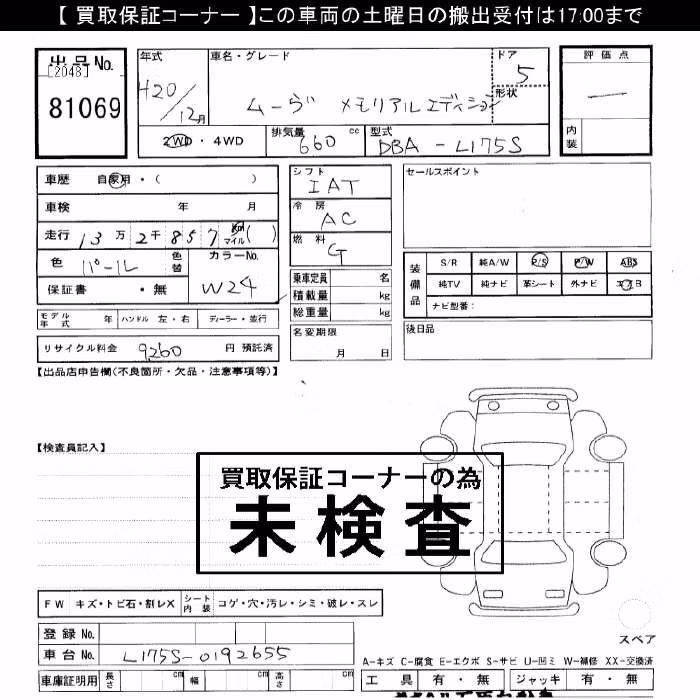 【 買取保証コーナー 】この車両の土曜日の搬出受付は17:00まで
出品No.
[2048]
81069
年式
H20/12月
車名・グレード
ムーヴ メモリアルエディション
ドア
5
形状
評価点
—
内装
2WD・4WD
排気量
660 cc
型式
DBA-L175S
車歴 自家用・( )
車検 年 月
走行 13万2千857 km マイル ( )
色 パール 色替
カラーNo.
W24
保証書 ・無
シフト
IAT
冷房
AC
燃料
G
乗車定員 名
積載量 kg
総重量 kg
名変期限
月 日
セールスポイント
装備品
S/R 純A/W P/S P/W ABS
純TV 純ナビ 革シート 外ナビ エアB
ナビ型番:
後日品
モデル年式 年 ハンドル 左・右 ディーラー・並行
リサイクル料金 9260 円 預託済
【出品店申告欄(不良箇所・欠品・注意事項等)】
【検査員記入】
買取保証コーナーの為
未検査
FW キズ・トビ石・割レX シート内装 コゲ・穴・汚レ・シミ・破レ・スレ
登録No.
車台No. L175S-0192655
車庫証明用 長さ cm 幅 cm 高さ cm
スペア
A-キズ C-腐食 E-エクボ S-サビ U-凹ミ W-補修 XX-交換済
工具 有・無 ジャッキ 有・無